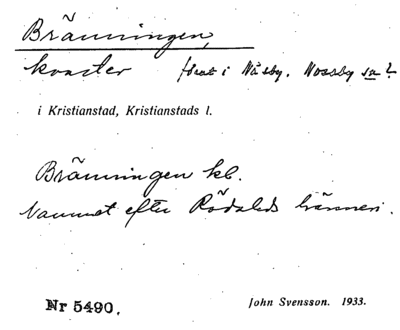 Bränningen,
kvarter förut i Näsby. Nosaby sn?
i Kristianstad, Kristianstads l.
Bränningen kb.
Namnet efter Rödaleds bränneri.
Nr 5490. John Svensson. 1933.